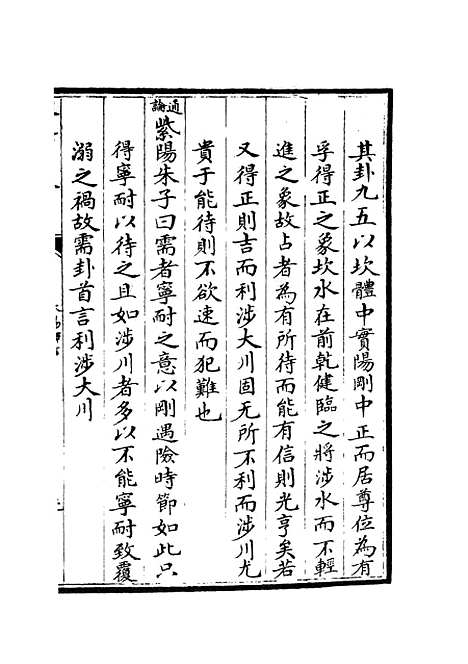 其卦九五以坎體中實陽剛中正而居尊位為有
孚得正之象坎水在前乾健臨之將涉水而不輕
進之象故占者為有所待而能有信則光亨矣若
又得正則吉而利涉大川固无所不利而涉川尤
貴于能待則不欲速而犯難也
通論
紫陽朱子曰需者寧耐之意以剛遇險時節如此只
得寧耐以待之且如涉川者多以不能寧耐致覆
溺之禍故需卦首言利涉大川